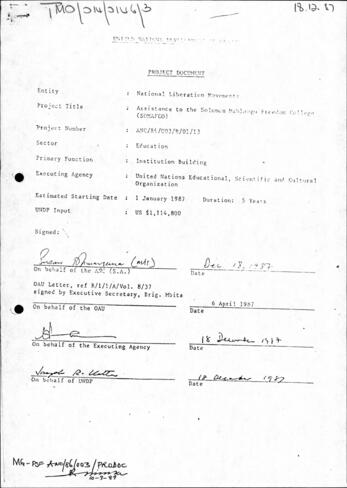 18.12.87
UNITED NATIONS DEVELOPMENT PROGRAMME
PROJECT DOCUMENT
Entity : National Liberation Movements
Project Title : Assistance to the Solomon Mahlangu Freedom College
(SOMAFCO)
Project Number : ANC/86/003/B/01/13
Sector : Education
Primary Function : Institution Building
Executing Agency : United Nations Educational, Scientific and Cultural
Organization
Estimated Starting Date : 1 January 1987 Duration: 5 Years
UNDP Input : US $1,114,800
Signed:
Dec 18, 1987
On behalf of the ANC (S.A.) Date
OAU Letter, ref B/1/1/A/Vol. 8/37
signed by Executive Secretary, Brig. Mbita
6 April 1987
On behalf of the OAU Date
18 December 1987
On behalf of the Executing Agency Date
18 December 1987
On behalf of UNDP Date
MG-PSF ANC/86/003/PRODOC